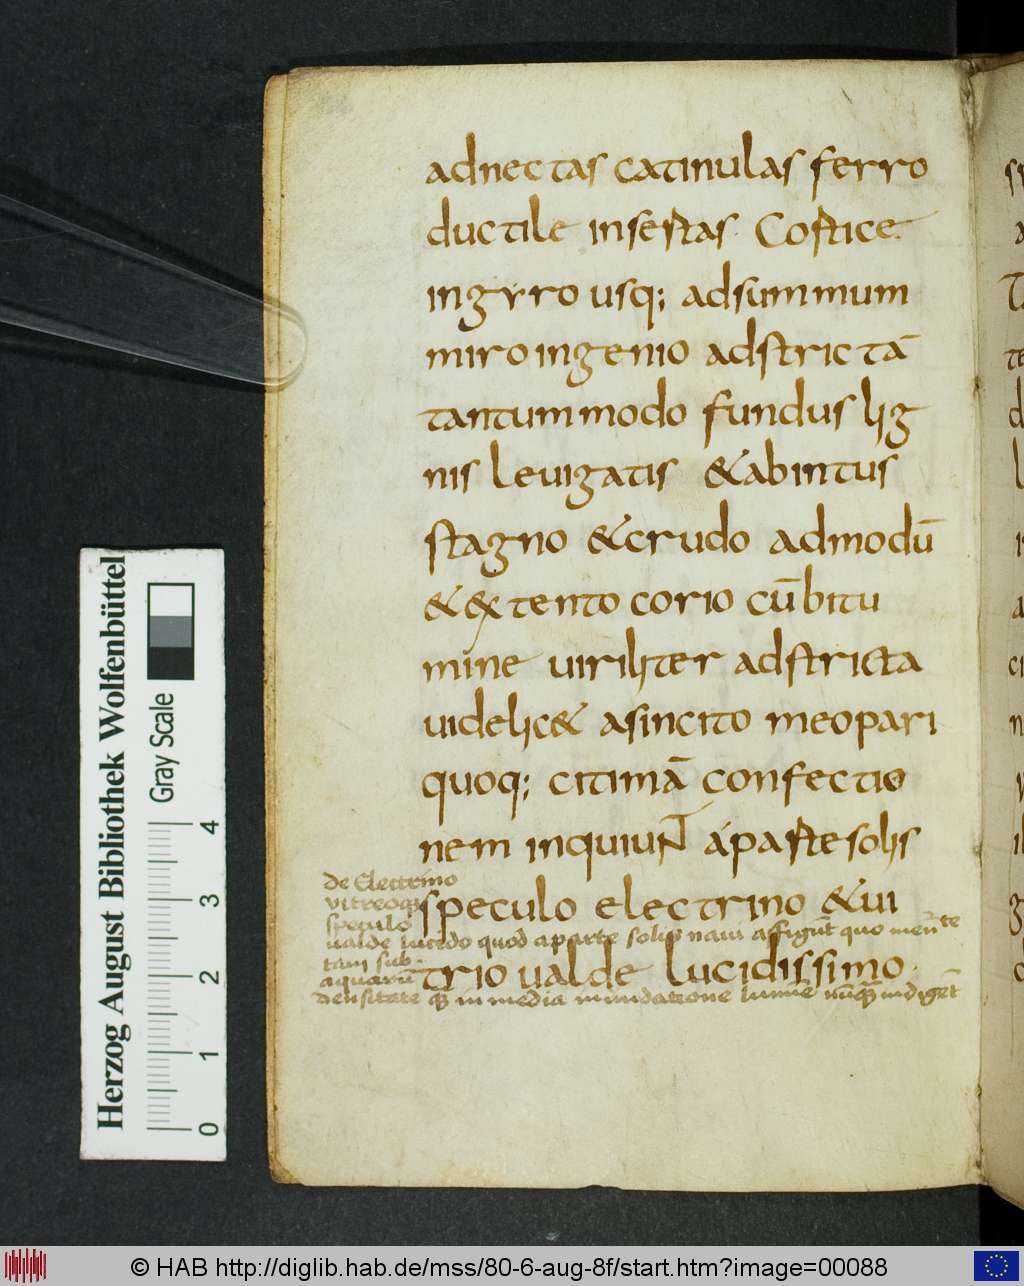 adnectas catinulas ferro
ductile insertas. Costice
ingyro usq; adsummum
miro ingenio adstrictā
tantummodo fundus lig
nis leuigatis &abintus
stagno &crudo admodū
&extento corio cū bitu
mine uiriliter adstricta
uidelic& asincito meopari
quoq; citimā confectio
nem inquiunt áparte solis
de Electrino
vitreoq;
speculo electrino &ui
speculo
ualde lucido quod aparte solis naui affigūt quo
tam sub
aquarū
trio ualde lucidissimo.
densitate q̄ in media inundatione lumīe nūq̄ indigēt
Herzog August Bibliothek Wolfenbüttel
Gray Scale
0 1 2 3 4
© HAB http://diglib.hab.de/mss/80-6-aug-8f/start.htm?image=00088